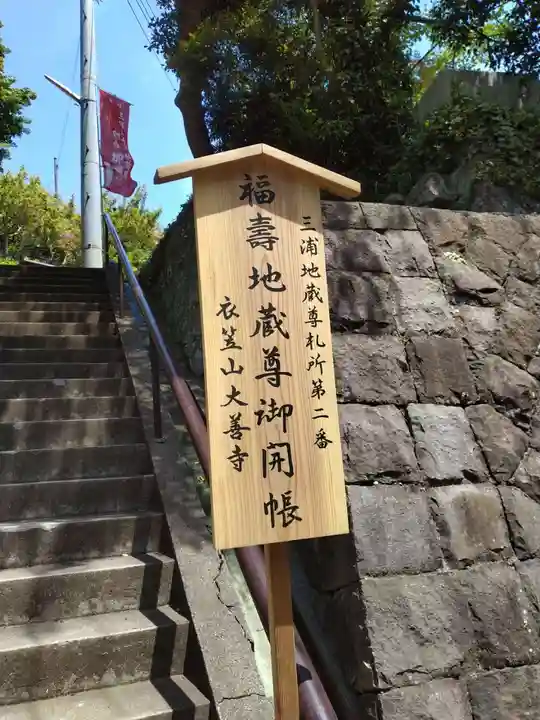 三浦地蔵尊札所第二番
福壽地蔵尊御開帳
衣笠山大善寺